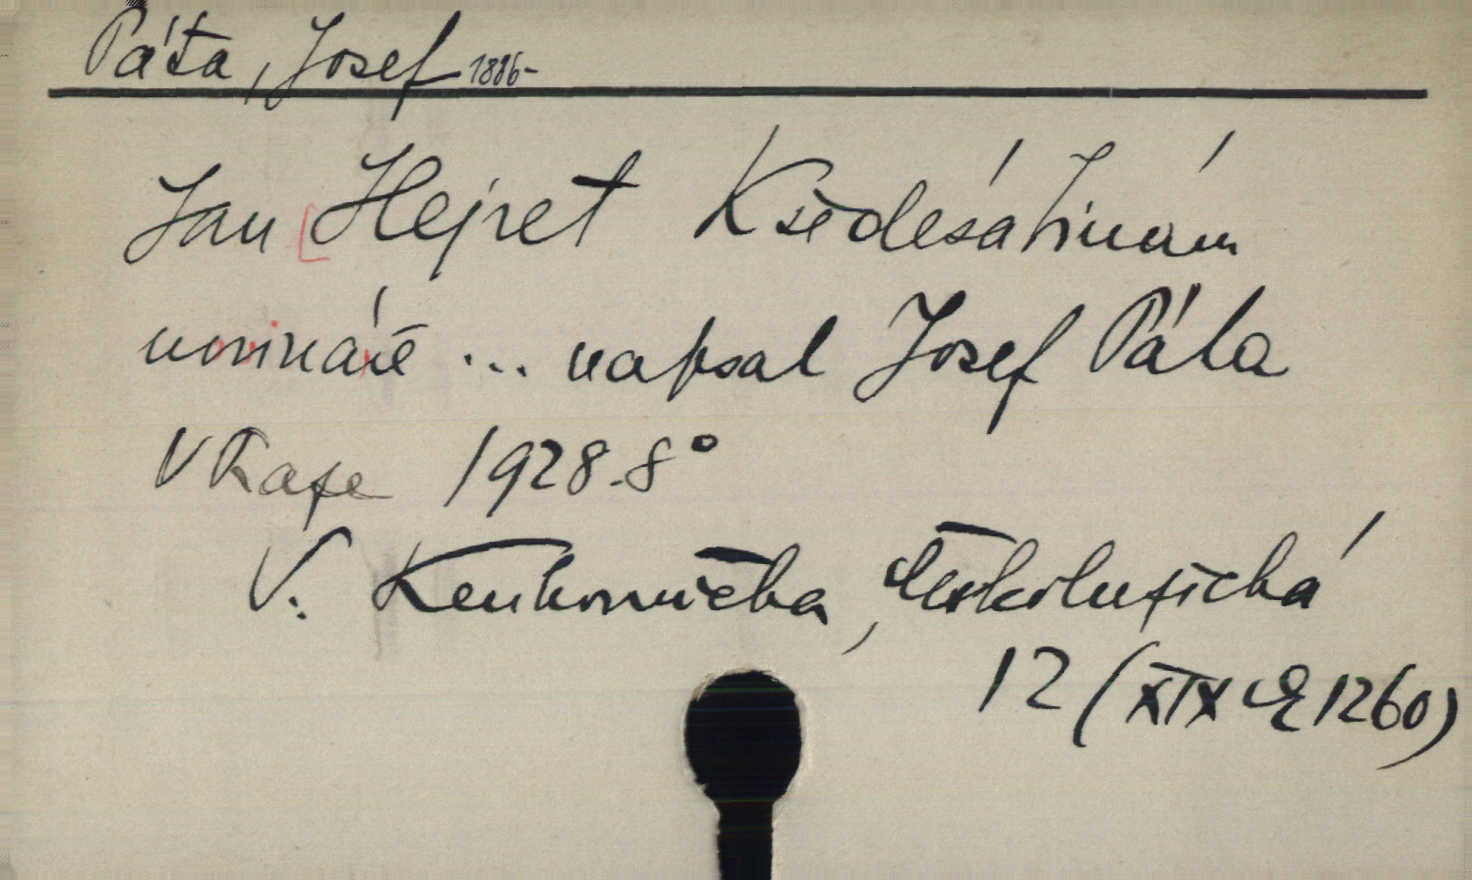 Páta, Josef 1886-
Jan Hejret K šedesátinám
novináře ... napsal Josef Páta
V Praze 1928. 8°
V: Knihovnička Českolužická
12 (XIX E 1260)